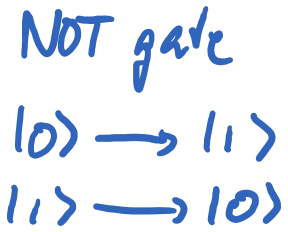 NOT gate
|0⟩ → |1⟩
|1⟩ → |0⟩